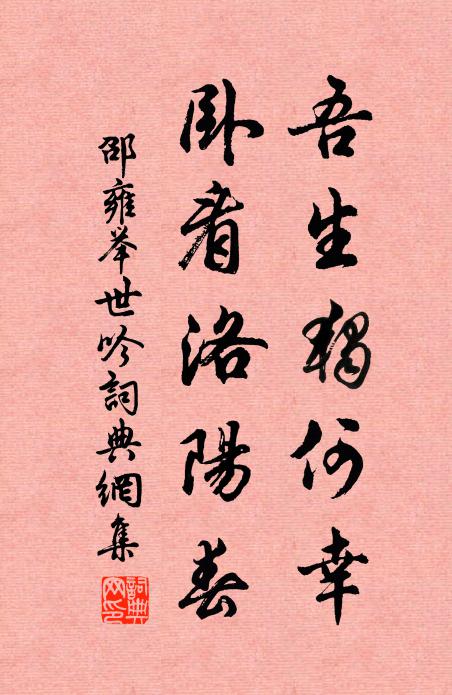 吾生獨何幸
臥看洛陽春
邵雍舉世吟詞典網集
詞典网印